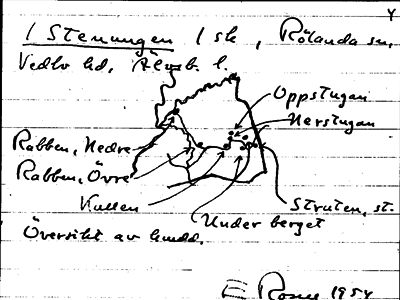 Y
1 Stenungen 1 sk, Rölanda sn,
Vedbo hd, Älvsb. l.
Oppstugan
Nerstugan
Rabben, Nedre
Rabben, Övre
Kullen
Struten, st.
Under berget
Översikt av hmdd.
E Rosell 1954